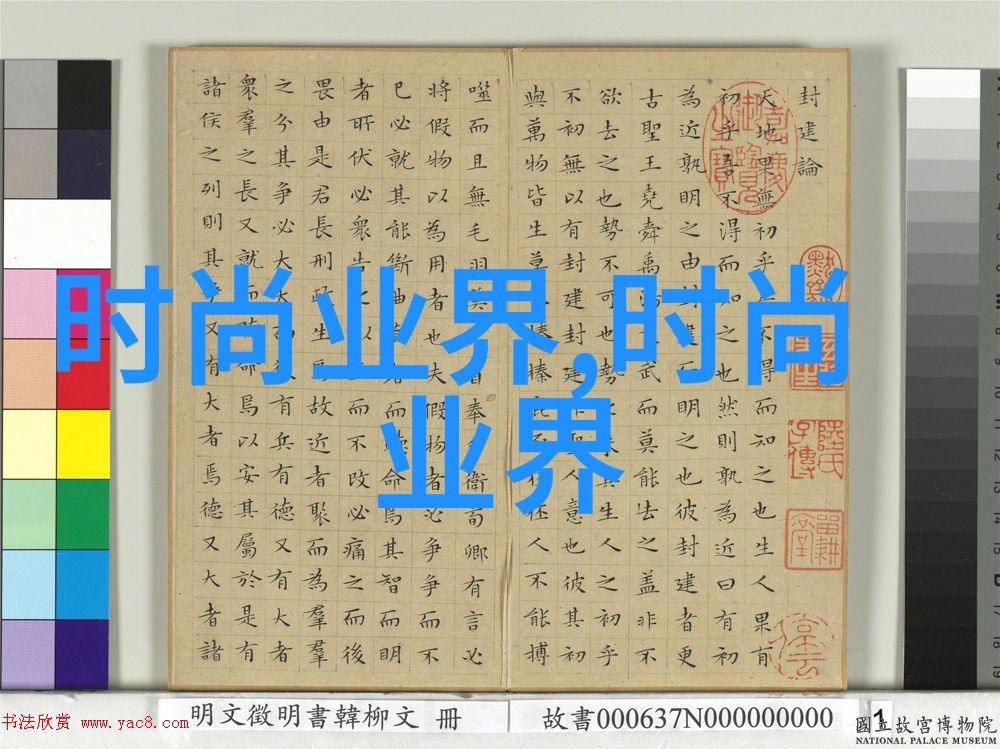 封建論
天地果無初乎吾不得而知之也生人果有
初乎吾不得而知之也然則孰為近曰有初
為近孰明之由封建而明之也彼封建者更
古聖王堯舜禹湯文武而莫能去之蓋非不
欲去之也勢不可也勢之來其生人之初乎
不初無以有封建封建非聖人意也彼其初
與萬物皆生草木榛榛鹿豕狉狉人不能搏
噬而且無毛羽莫克自奉自衛荀卿有言必
將假物以為用者也夫假物者必爭爭而不
已必就其能斷曲直者而聽命焉其智而明
者所伏必衆告之以直而不改必痛之而後
畏由是君長刑政生焉故近者聚而為羣
之分其爭必大大而後有兵有德又有大者
衆羣之長又就而聽命焉以安其屬於是有
諸侯之列則其爭又有大者焉德又大者諸
时尚业界,时尚
业界
書法欣赏 www.yac8.com
明文徵明書韓柳文 冊
故書000637N000000000
1
國立故宮博物院
NATIONAL PALACE MUSEUM